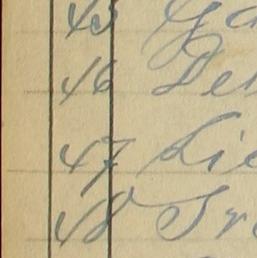 45 Ga
46 Der
47 Lie
48 Tr